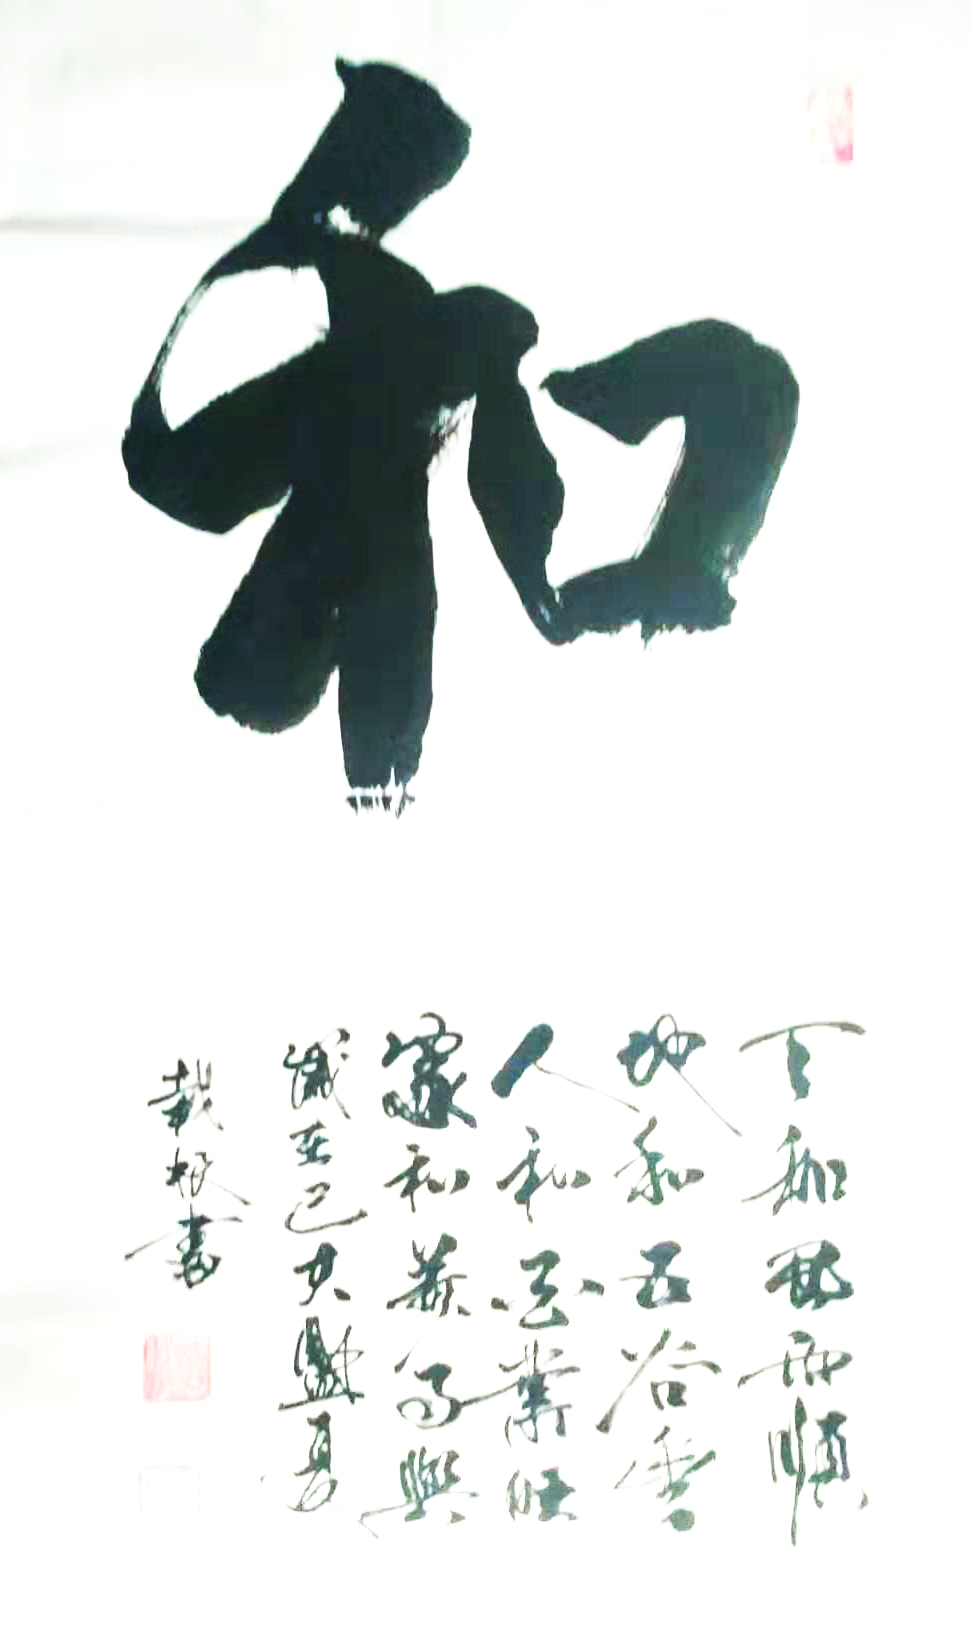 和
天和风雨順
地和五谷香
人和百業旺
家和萬事興
歲在己亥盛夏
載根書